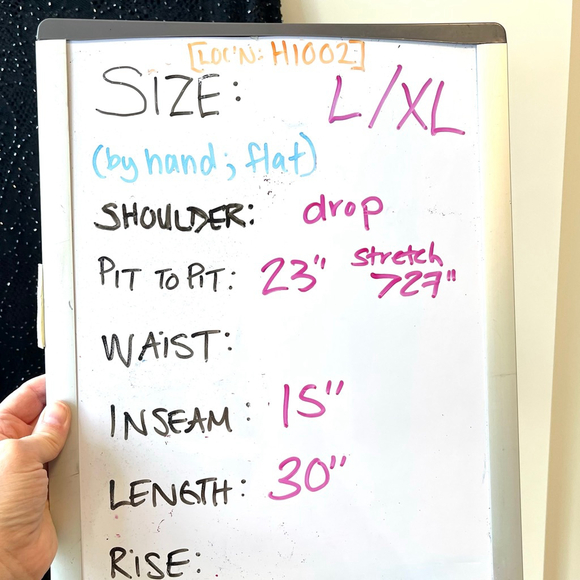 [LOC'N: H1002]
SIZE: L/XL
(by hand; flat)
SHOULDER: drop
PIT TO PIT: 23" stretch >27"
WAIST:
INSEAM: 15"
LENGTH: 30"
RISE: